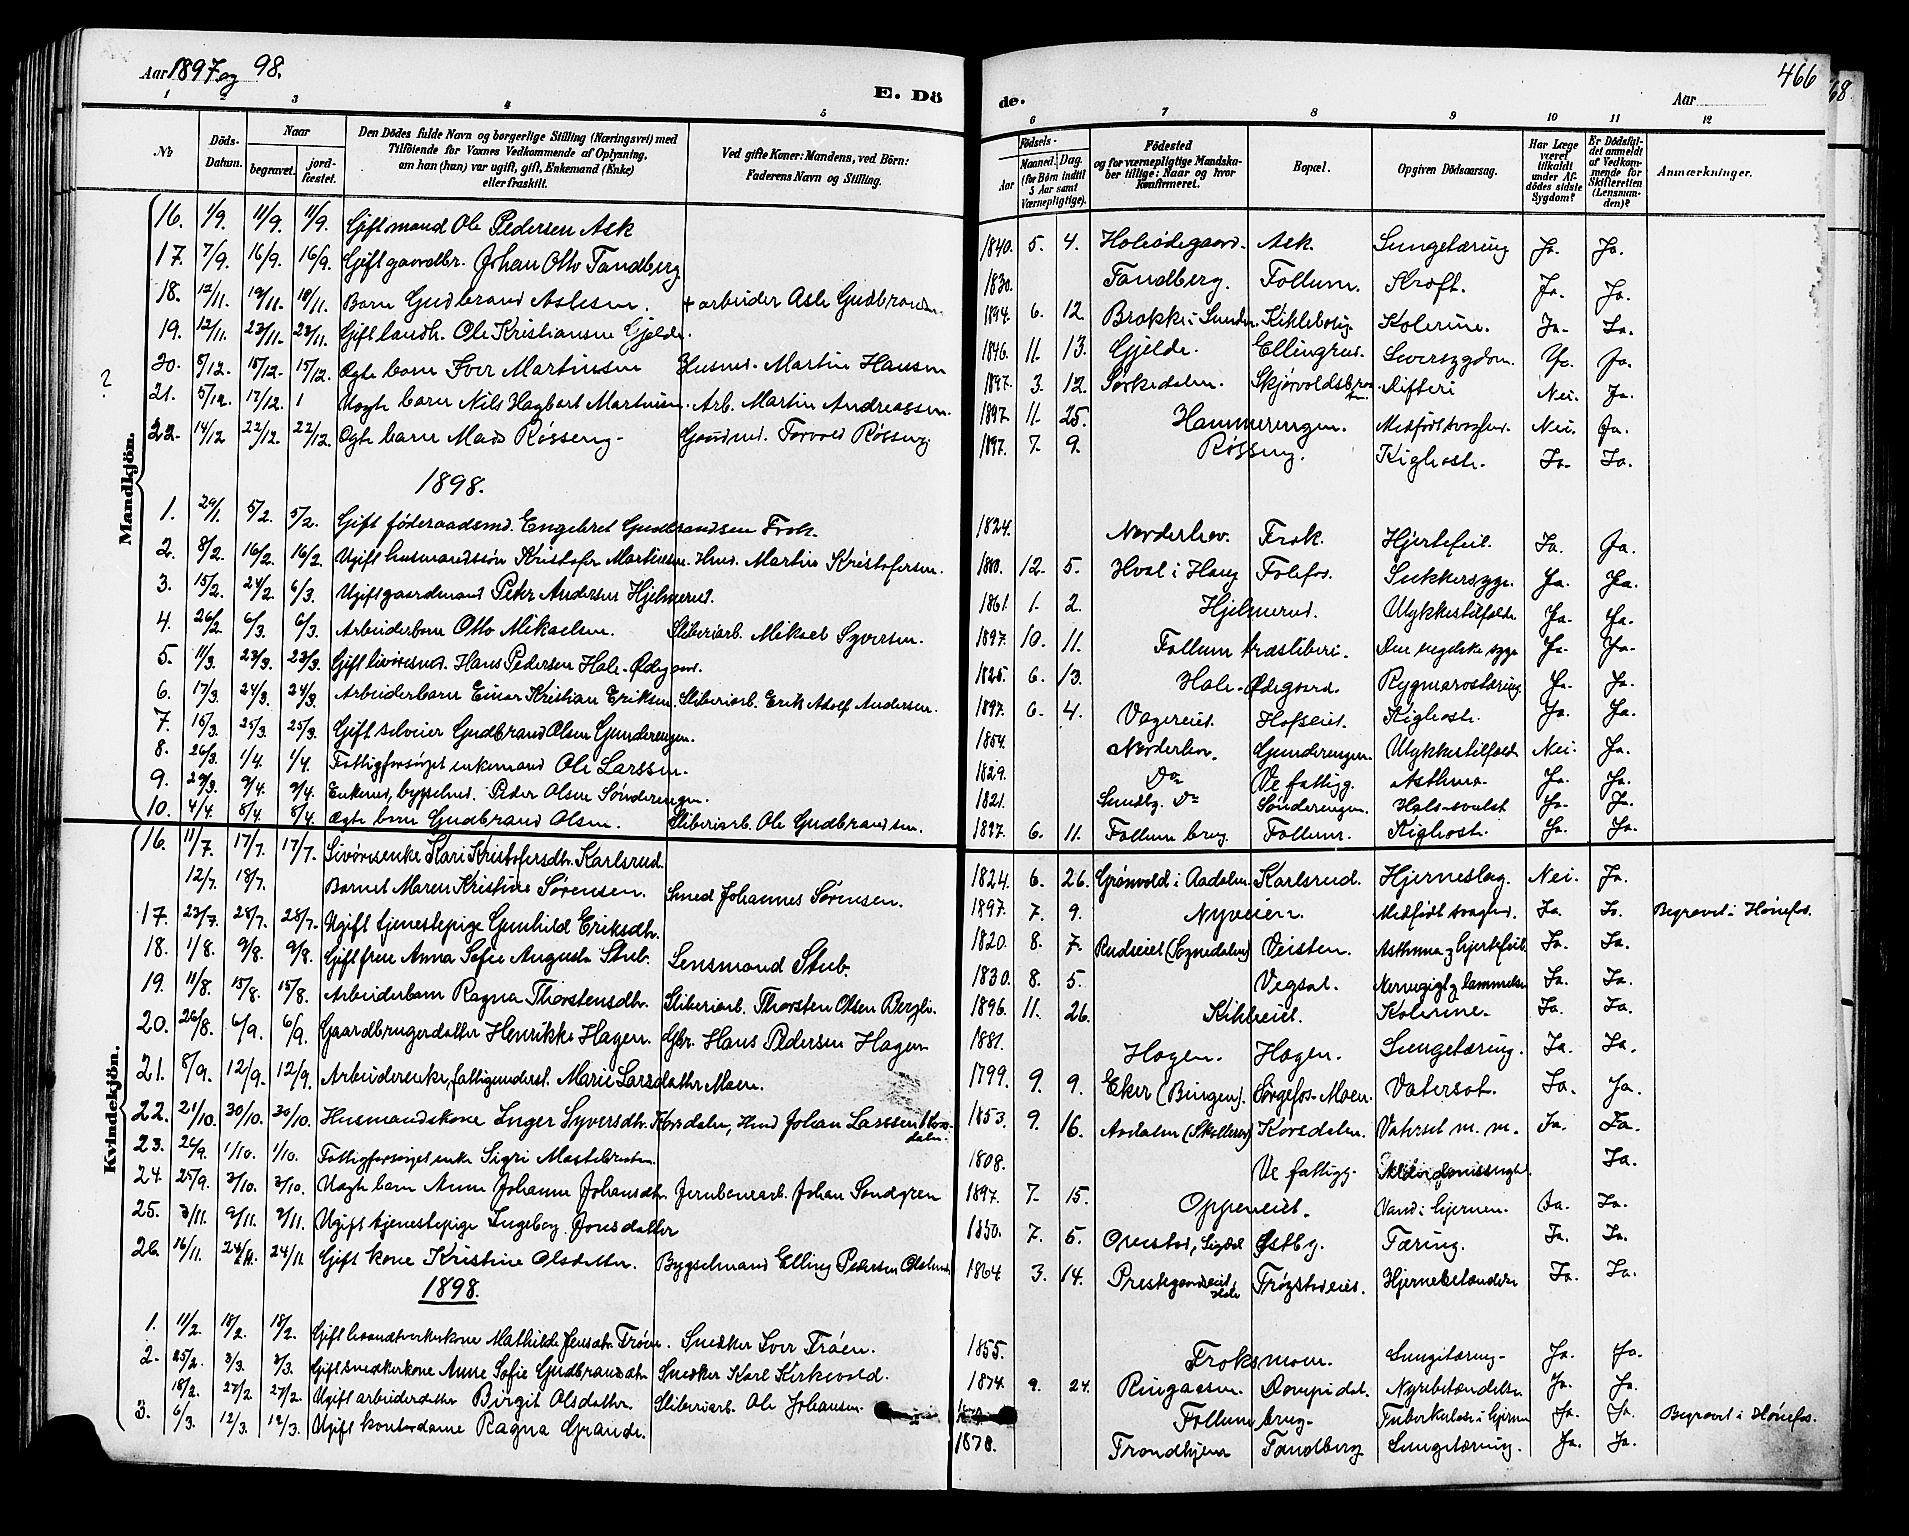 Aar 1897 og 98.
E. Döde.
Aar
466
68
1 2 3 4 5 6 7 8 9 10 11 12
No Döds-Datum. Naar begravet. jord-fæstet. Den Dödes fulde Navn og borgerlige Stilling (Næringsvei) med Tilföiende for Voxnes Vedkommende af Oplysning, om han (hun) var ugift, gift, Enkemand (Enke) eller fraskilt. Ved gifte Koner: Mandens, ved Börn: Faderens Navn og Stilling. Födsels- Aar Maaned. Dag. (for Börn indtil 5 Aar samt Værnepligtige). Födested og for værnepligtige Mandskaber tillige: Naar og hvor konfirmeret. Bopæl. Opgiven Dödsaarsag. Har Læge været tilkaldt under Afdödes sidste Sygdom? Er Dödsfaldet anmeldt af Vedkommende for Skifteretten (Lensmanden)? Anmærkninger.
Mandkjön.
16. 1/9. 11/9. 11/9. Gift mand Ole Pedersen Ask 1840. 5. 4. Ask. Lungetæring Ja. Ja.
17. 7/9. 16/9. 16/9. Gift gaardbr. Johan Otto Tandberg 1830. Tandberg. Follum. Kræft. Ja. Ja.
18. 12/11. 19/11. 19/11. Barn Gudbrand Aslesen. + arbeider Asle Gudbrandsen. 6. 12. Kolerine. Ja. Ja.
19. 12/11. 23/11. 23/11. Gift landh. Ole Kristiansen Gjelde. 1846. 11. 13. Gjelde. Ellingrud. Leversygdom. Ja. Ja.
20. 5/12. 15/12. 15/12. Ægte barn Iver Martinsen Husmd. Martin Hansen 1897. 3. 12. Sørkedalen. Difteri Nei. Ja.
?
21. 5/12. 17/12. 1 Uægte barn Nils Hagbart Martinsen. Arb. Martin Andreassen. 1897. 11. 25. Hammerengen. Medfødt svaghed. Nei. Ja.
22. 14/12. 22/12. 22/12. Ægte barn Mads Røsseng. Gaardmd. Torvald Røsseng 1897. 7. 9. Røsseng. Kighoste. Ja. Ja.
1898.
1. 29/1. 5/2. 5/2. Gift føderaadsmd. Engebret Gudbrandsen Frok. 1824. Norderhov. Frok. Hjertefeil. Ja. Ja.
2. 8/2. 16/2. 16/2. Ugift husmandssøn Kristofer Martinsen. Husm. Martin Kristofersen. 12. 5. Hval i Haug Follefos. Sukkersyge. Ja. Ja.
3. 15/2. 24/2. 6/3. Ugift gaardmand Peter Andersen Hjelmerud. 1861. 1. 2. Hjelmerud. Ulykkestilfælde Ja. Ja.
4. 26/2. 6/3. 6/3. Arbeiderbarn Otto Mikaelsen. Sliberiarb. Mikael Syversen. 1897. 10. 11. Follum træsliberi. Den engelske syge Ja. Ja.
5. 11/3. 23/3. 23/3. Gift livøresmd. Hans Pedersen Hole-Ødegaard. 1825. 6. 13. Hole-Ødegaard. Rygmarvstæring Ja. Ja.
6. 17/3. 24/3. 24/3. Arbeiderbarn Einar Kristian Eriksen. Sliberiarb. Erik Adolf Andersen. 1897. 6. 4. Vagereiet. Hofseiet. Kighoste. Ja. Ja.
7. 15/3. 25/3. 25/3. Gift selveier Gudbrand Olsen Gunderengen. 1854. Norderhov. Gunderengen. Ulykkestilfælde Nei. Ja.
8. 26/3. 1/4. 1/4. Fattigforsørget enkemand Ole Larssen. 1829. Do Ve fattigg. Asthma. Ja. Ja.
9. 29/3. 9/4. 9/4. Enkemd. bygselmd. Peder Olsen Sønderengen. 1821. Do Sønderengen. Hals-svulst Ja. Ja.
10. 4/4. 8/4. 8/4. Ægte barn Gudbrand Olsen. Sliberiarb. Ole Gudbrandsen. 1897. 6. 11. Follum brug. Follum. Kighoste. Ja. Ja.
Kvindekjön.
16. 11/7. 17/7. 17/7. Livøresenke Kari Kristofersdtr. Karlsrud. 1824. 6. 26. Grønvold i Aadalen. Karlsrud. Hjerneslag. Nei. Ja.
12/7. 18/7. Barnet Maren Kristine Sørensen. Smed Johannes Sørensen. 1897. 7. 9. Nyveien. Medfødt svaghed. Ja. Ja. Begravet i Hønefos.
17. 23/7. 28/7. 28/7. Ugift tjenestepige Gunhild Eriksdtr. 1820. 8. 7. Rudseiet (Sognedalen) Veisten. Asthma og Hjertefeil. Ja. Ja.
18. 1/8. 9/8. 9/8. Gift frue Anna Sofie Augusta Stub. Lensmand Stub. 1830. 8. 5. Vegsal. Nervegigt og lammelse Ja. Ja.
19. 11/8. 15/8. 15/8. Arbeiderbarn Ragna Thorstensdtr. Sliberiarb. Thorsten Olsen Bergli. 1896. 11. 26. Kihleiet. Kolerine. Ja. Ja.
20. 26/8. 6/9. 6/9. Gaardbrugerdatter Henrikke Hagen. Gbr. Hans Pedersen Hagen 1881. Hagen. Hagen. Lungetæring. Ja. Ja.
21. 8/9. 12/9. 12/9. Arbeiderenke, fattigunderst. Marie Larsdatter Moen. 1799. 9. 9. Eker (Bingen). Sørgefos-Moen. Vatersot. Ja. Ja.
22. 21/10. 30/10. 30/10. Husmandskone Inger Syversdtr. Korsdalen, Husmd Johan Larssen Korsdalen. 1853. 9. 16. Aadalen Korsdalen. Vatersot m. m. Ja. Ja.
23. 26/9. 1/10. 1/10. Fattigforsørget enke Sigri Mostebraaten. 1808. Ve fattigg. Ja.
24. 25/9. 3/10. 3/10. Uægte barn Anne Johanne Johansdtr. Jernbanearb. Johan Sondgren 1897. 7. 15. Oppeneiet. Vand i hjernen. Ja. Ja.
25. 3/11. 9/11. 9/11. Ugift tjenestepige Ingeborg Jonsdatter 1850. 7. 5. Sigdal Østby. Tæring. Ja. Ja.
26. 16/11. 24/11. 24/11. Gift kone Kristine Olsdatter. Bygselmand Elling Pedersen 1864. 3. 14. Prestegaardseiet Hole Trøgstadeiet. Hjernebetændelse Ja. Ja.
1898.
1. 11/2. 18/2. 18/2. Gift haandverkerkone Mathilde Jensdtr. Trøen. Snedker Iver Trøen. 1855. Froksmoen. Lungetæring. Ja. Ja.
2. 25/2. 3/3. 3/3. Gift snedkerkone Anne Sofie Gudbransdtr. Snedker Karl Kirkevold. 1874. 9. 24. Ringaasen Nyrebetændelse Ja. Ja.
18/2. 27/2. 27/2. Ugift arbeiderdatter Birgit Olsdatter. Sliberiarb. Ole Johansen. Follum brug. Tuberkulose i hjernen Ja. Ja. Begravet i Hønefos.
3. 6/3. 12/3. 12/3. Ugift kontordame Ragna Grande. 1878. Trondhjem Tandberg Lungetæring. Ja. Ja.